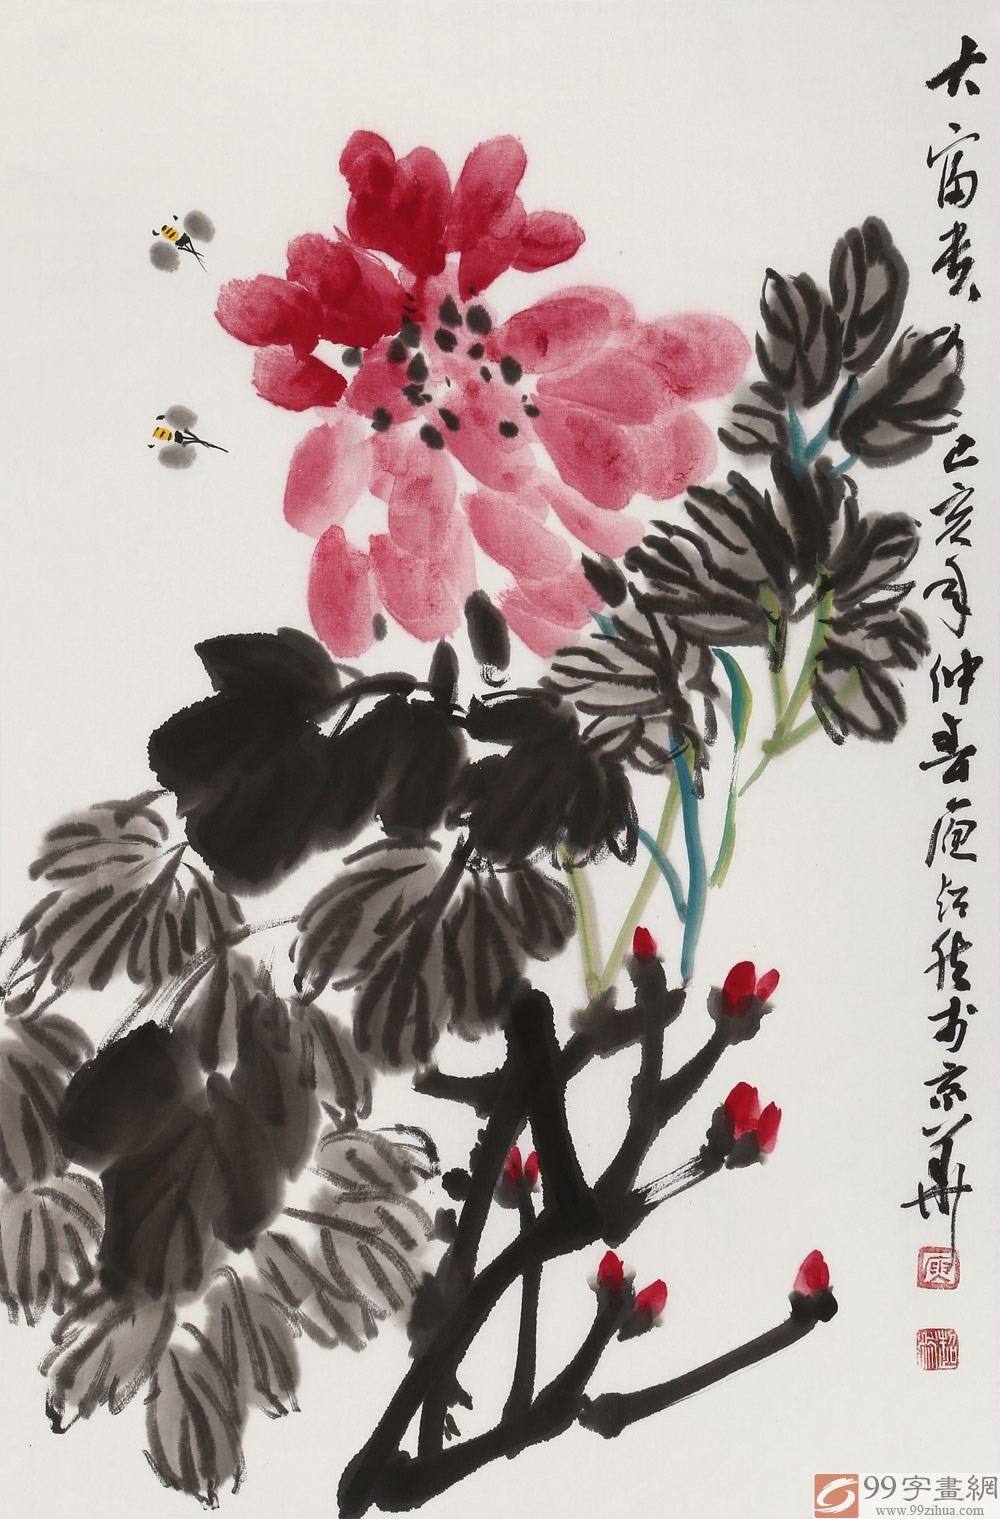 大富贵 己亥年仲春庾超然於京華
庾
99字畫網
www.99zihua.com